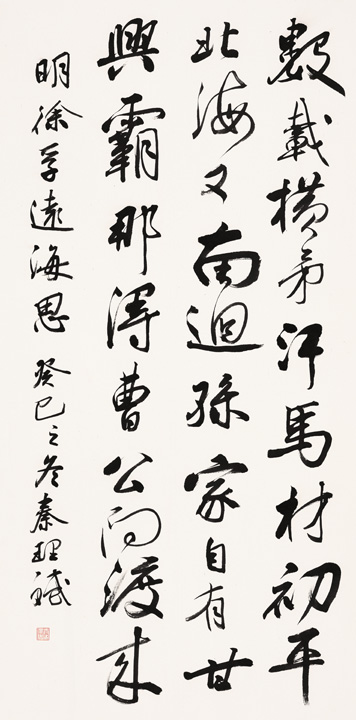 數載橫矛汗馬材初平
北海又南迴孫家自有甘
興霸那得曹公問渡來
明徐孚遠海思 癸巳之冬秦理斌